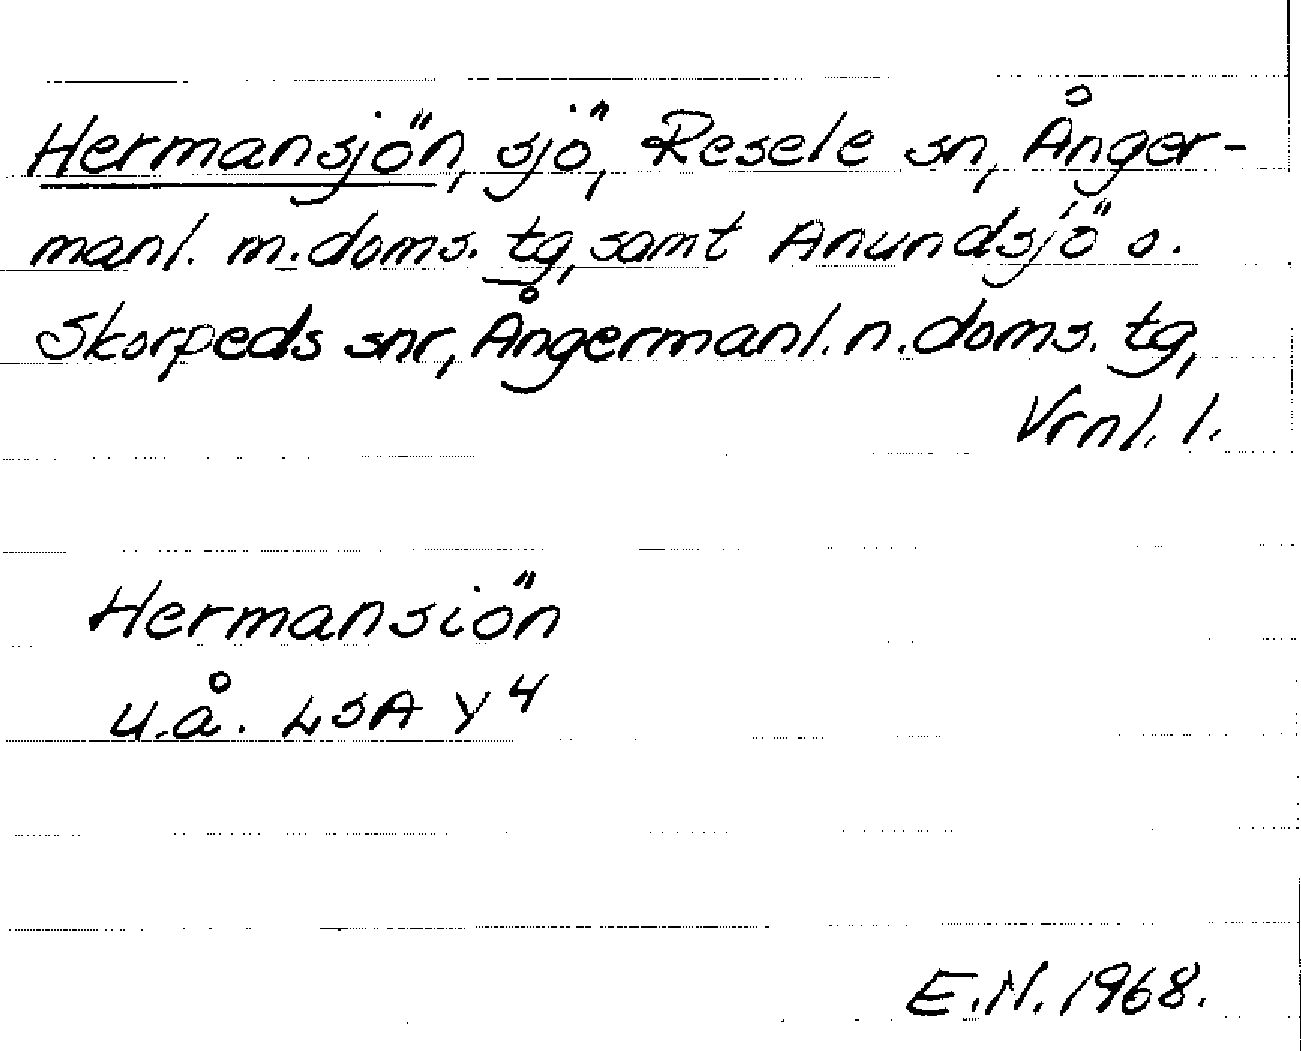 Hermansjön, sjö, Resele sn, Ånger-
manl. m. doms. tg, samt Anundsjö o.
Skorpeds snr, Ångermanl. n. doms. tg,
Vrnl. l.
Hermansiön
u.å. LSA Y 4
E.N. 1968.